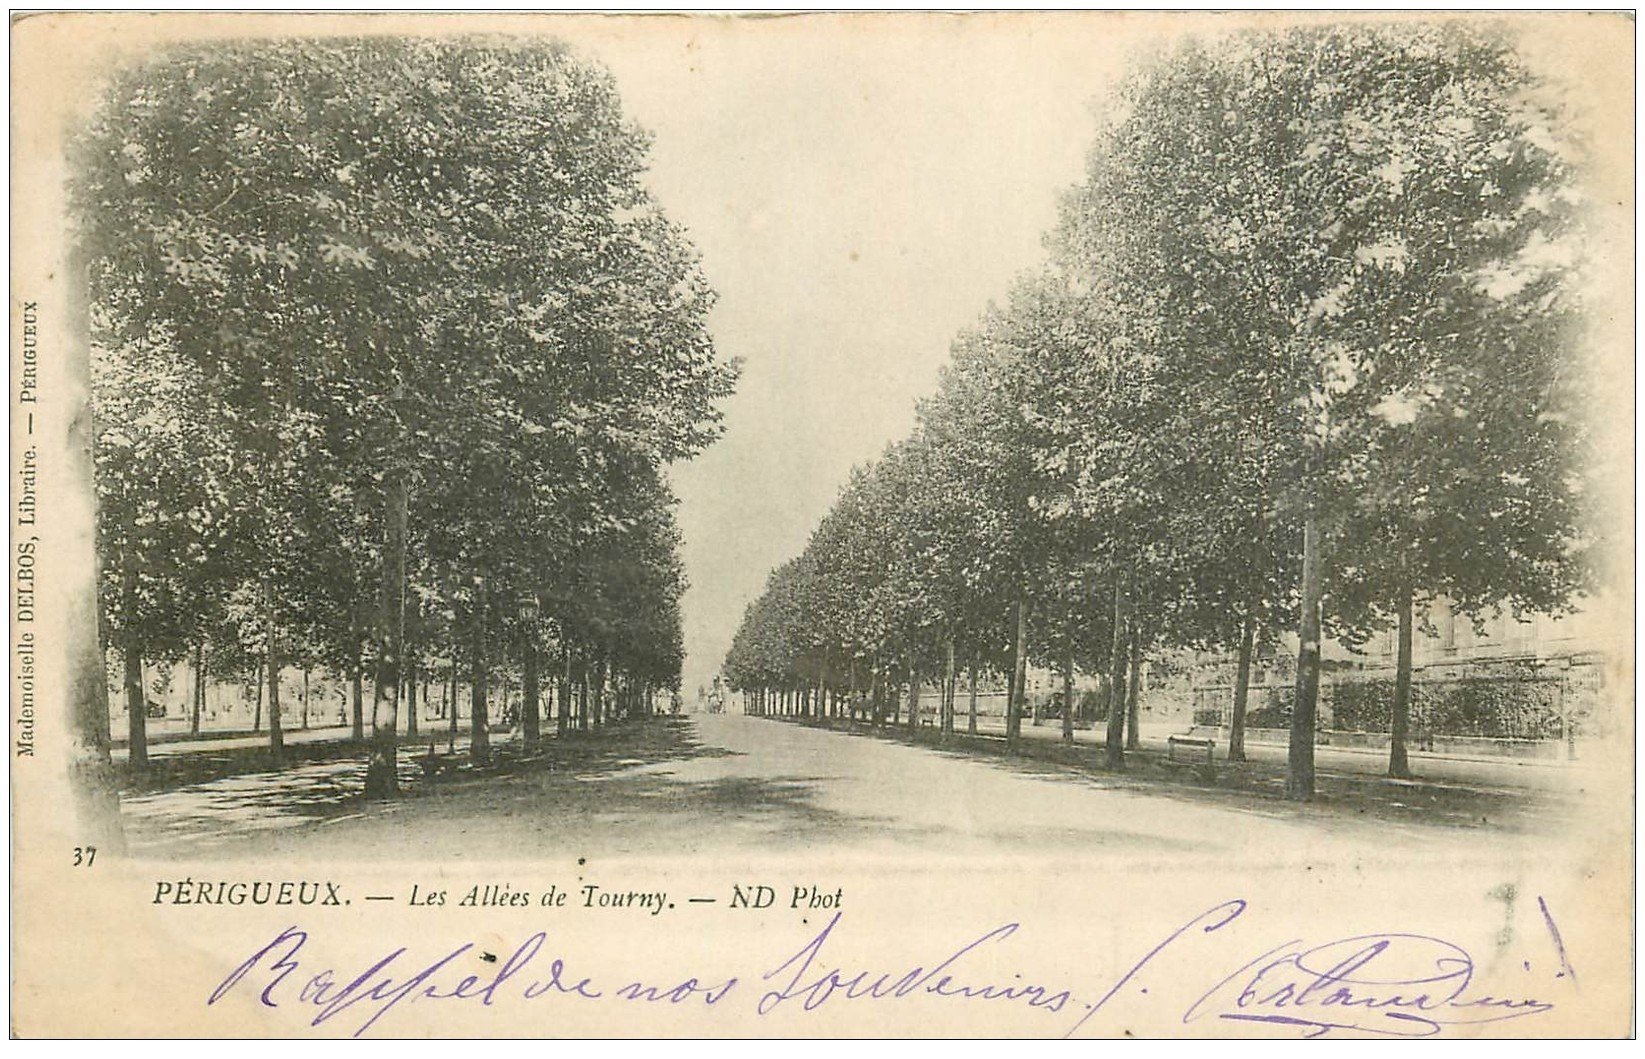 Mademoiselle DELBOS, Libraire. — PÉRIGUEUX
37
PÉRIGUEUX. — Les Allées de Tourny. — ND Phot
Rappel de nos Souvenirs.